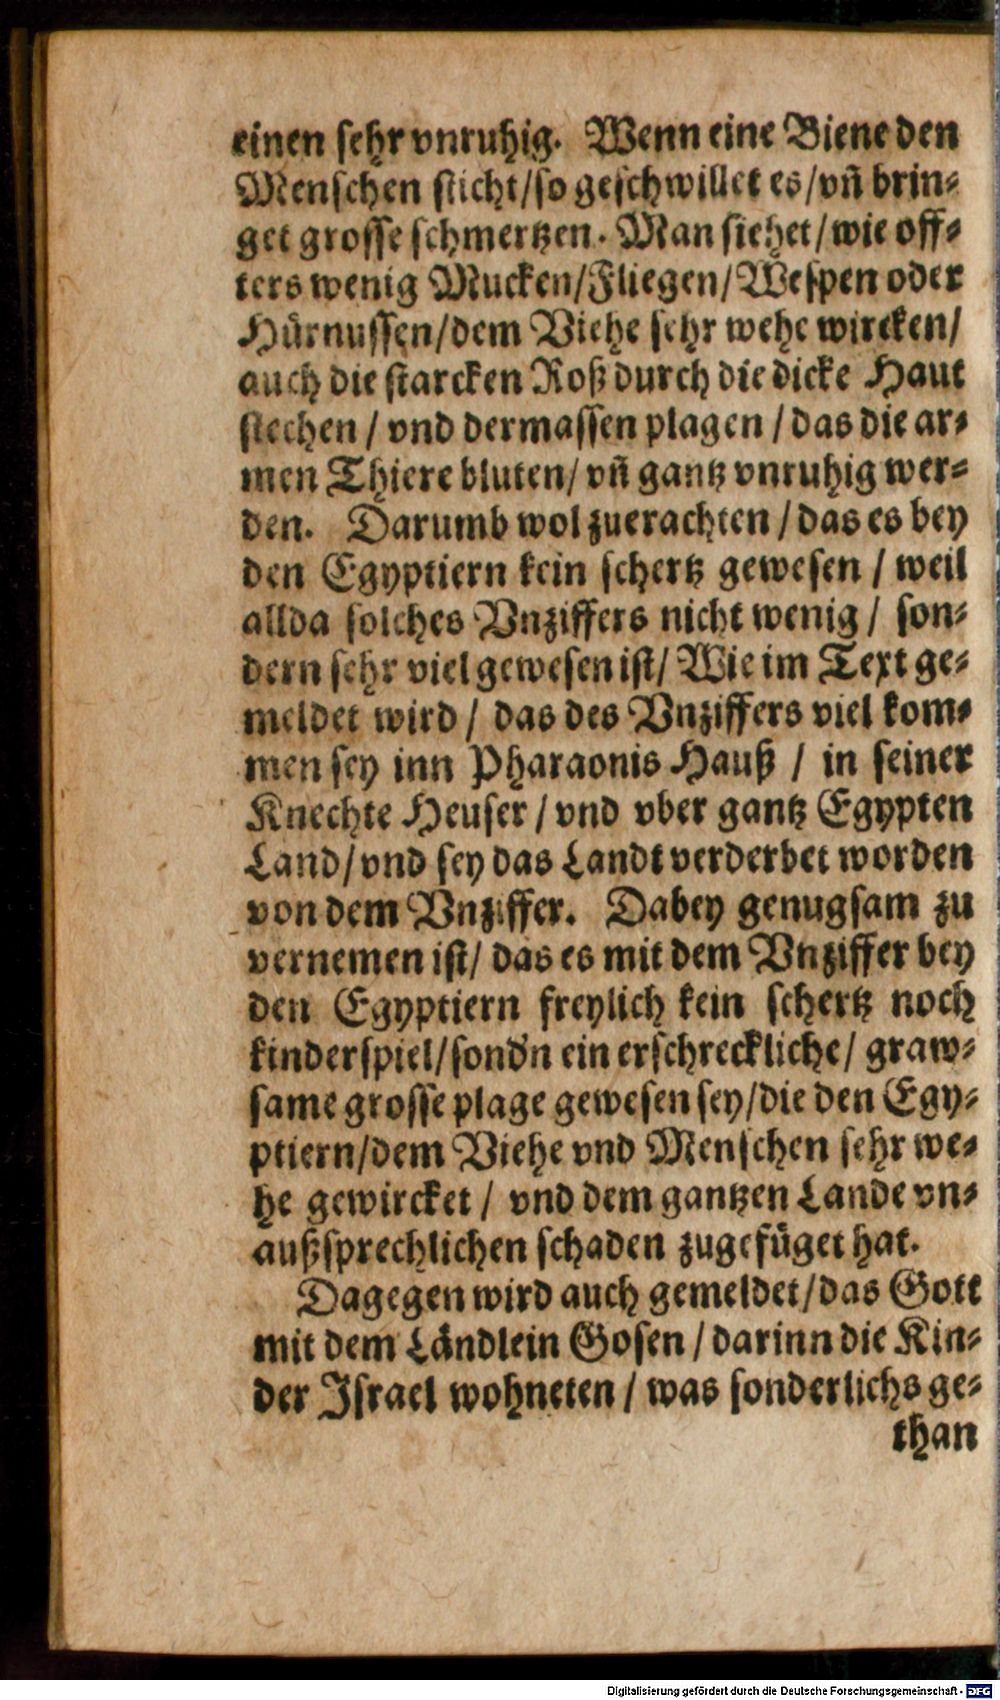 einen sehr vnruhig. Wenn eine Biene den
Menschen sticht/so geschwillet es/vn̄ brin⸗
get grosse schmertzen. Man siehet/wie off⸗
ters wenig Mucken/Fliegen/Wespen oder
Hürnussen/dem Viehe sehr wehe wircken/
auch die starcken Roß durch die dicke Haut
stechen / vnd dermassen plagen / das die ar⸗
men Thiere bluten/ vn̄ gantz vnruhig wer⸗
den. Darumb wol zuerachten / das es bey
den Egyptiern kein schertz gewesen / weil
allda solches Vnziffers nicht wenig / son⸗
dern sehr viel gewesen ist/ Wie im Text ge⸗
meldet wird / das des Vnziffers viel kom⸗
men sey inn Pharaonis Hauß / in seiner
Knechte Heuser / vnd vber gantz Egypten
Land/vnd sey das Landt verderbet worden
von dem Vnziffer. Dabey genugsam zu
vernemen ist/ das es mit dem Vnziffer bey
den Egyptiern freylich kein schertz noch
kinderspiel/sond'n ein erschreckliche/ graw⸗
same grosse plage gewesen sey/die den Egy⸗
ptiern/dem Viehe vnd Menschen sehr we⸗
he gewircket / vnd dem gantzen Lande vn⸗
außsprechlichen schaden zugefüget hat.
Dagegen wird auch gemeldet/das Gott
mit dem Ländlein Gosen / darinn die Kin⸗
der Israel wohneten / was sonderlichs ge⸗
than
Digitalisierung gefördert durch die Deutsche Forschungsgemeinschaft - DFG